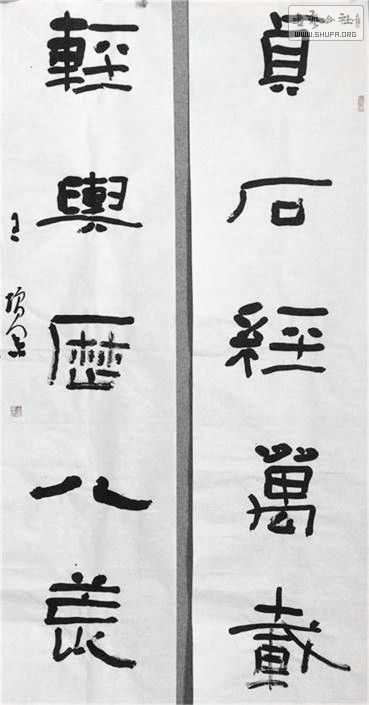 貞石經萬載
輕輿歷八荒
書藝公社
WWW.SHUFA.ORG